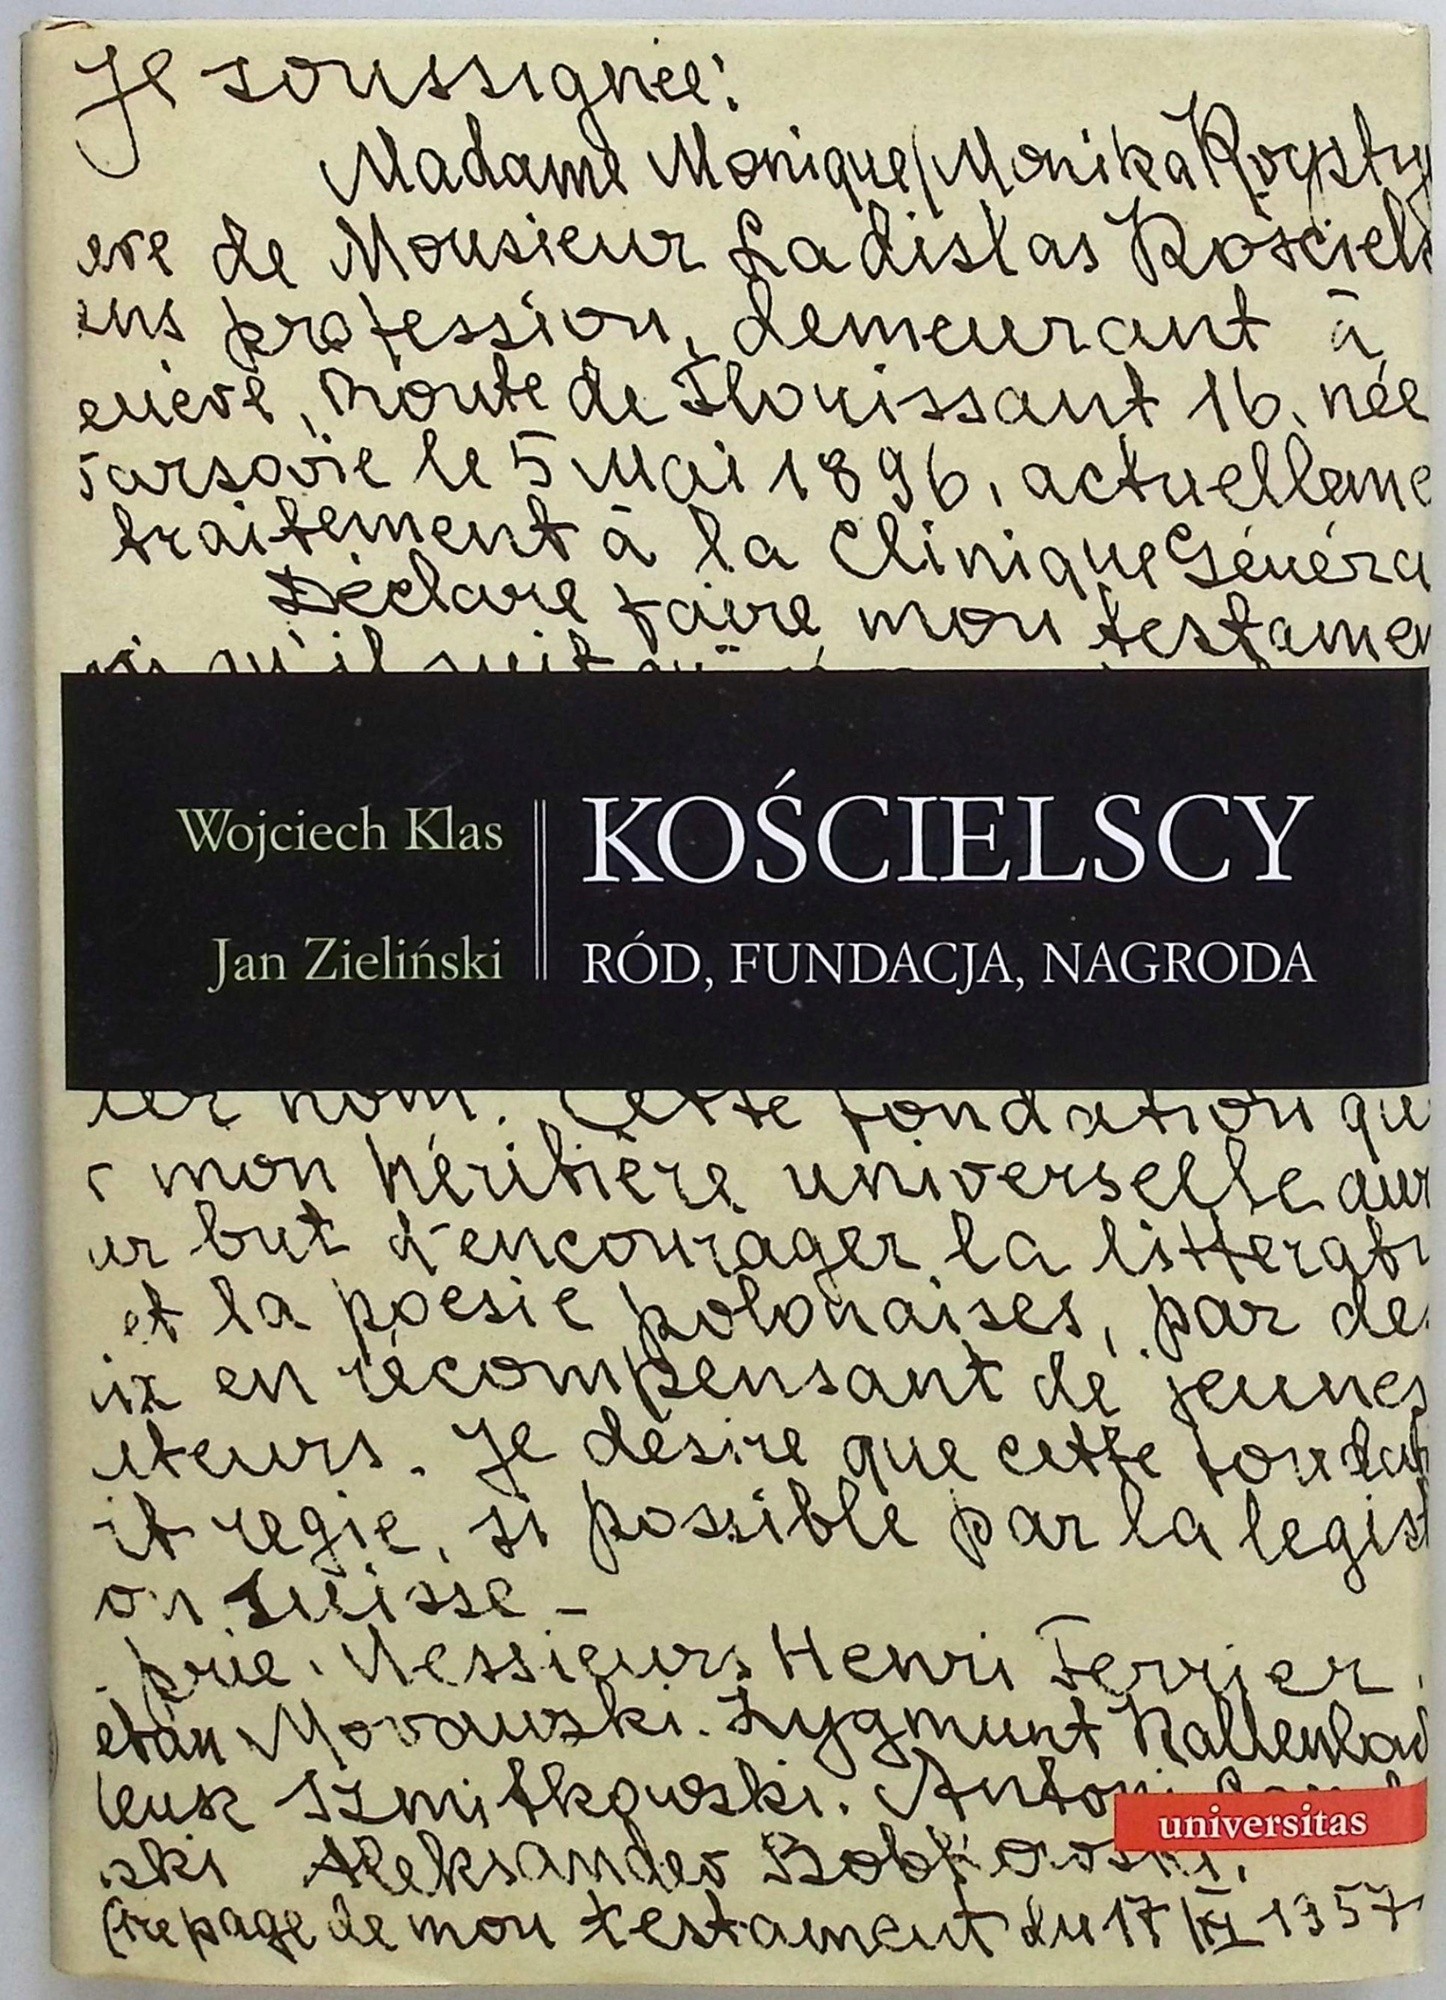 Je soussignée:
Madame Monique/Monika Krysty
uve de Monsieur Ladislas Kościels
ans profession, demeurant à
enève, Route de Florissant 16, née
arsovie le 5 Mai 1896, actuelleme
traitement à la Clinique Généra
Déclare faire mon testame
qu'il suit
Wojciech Klas
Jan Zieliński
KOŚCIELSCY
RÓD, FUNDACJA, NAGRODA
nom. Cette fondation qu
mon héritière universelle aur
ur but d'encourager la litteratu
et la poesie polonaises, par de
ix en récompensant de jeunes
uteurs. Je désire que cette fondat
it regie, si possible par la legisl
on suisse –
prie. Messieurs Henri Ferrier,
Morawski. Zygmunt Kallenbad
Szmitkowski. Antoni
ski Aleksander Bobkowski.
universitas
page de mon testament du 17 1957